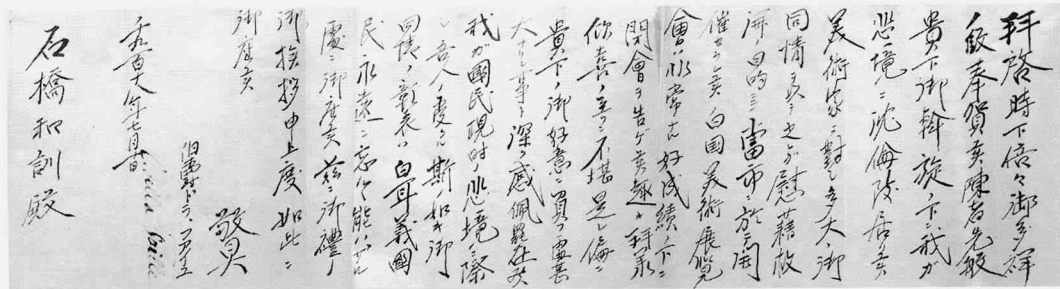 拝啓時下倍々御多祥
欣奉賀候陳者先般
貴下御斡旋ノ下ニ我ガ
悲境ニ沈倫致居候
美術家ニ對シ多大ノ御
同情ヲ以テ之ガ慰藉救
済ノ目的ニテ當市ニ於テ開
催セラレ候白国美術展覧
會ハ非常ナル好成績ノ下ニ
閉會ヲ告ゲ候趣キ拝承
欣喜ノ至ニ不堪是レ偏ニ
貴下ノ御好意ニ負フ處甚
大ナル事ト深ク感佩罷在候
我ガ國民現時ノ悲境ニ際
シ吾人ノ受クル斯ノ如キ御
同情ノ彰表ハ白耳義國
民ノ永遠ニ忘ルル能ハザル
處ニ御座候茲ニ御禮
御挨拶申上度如此ニ
御座候
敬具
石橋和訓殿